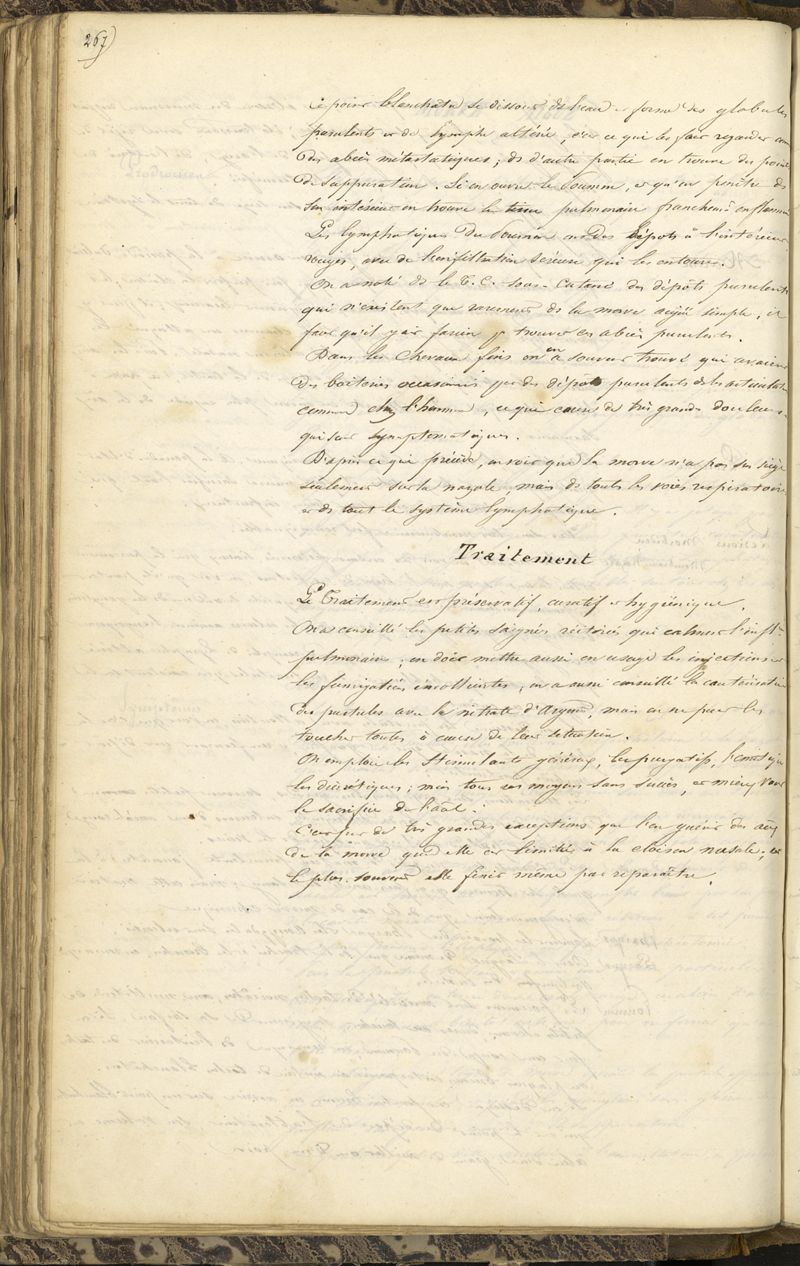 267)
Ce point blanchâtre se dissout ds l'eau et forme des globules
purulents et de lymphe altérée, c'est ce qui les fait regarder com
Des abcès métastatiques; ds d'autre partie on trouve des points
De suppuration. Si on ouvre le Poumon, et qu'on penètre ds
son intérieur on trouve le tissu pulmonaire franchemt enflammé
Les lymphatiques Du Poumon ont Des dépots à l'intérieur
rouges, avec de l'infiltration séreuse qui les entoure.
On a noté ds le T. C. sous-Cutané des dépots purulents
qui n'existent que rarement ds la morve aiguë simple, il
faut qu'il y ait farcin pr trouver ces abcès purulents.
Dans les Chevaux fins on en a souvent trouvé qui avaient
Des boiteries occasionées par des dépots purulents ds les articulat
comme chez l'homme, ce qui cause de très grandes douleurs
qui sont symptomatiques.
D'après ce qui précède, on voit que la morve n'a pas son siége
seulement sur la nazale, mais ds touts les voies respiratoire
et ds tout le système lymphatique.
Traitement
Le Traitement est préservatif, curatif et hygiènique.
On a conseillé les petites saignées réitérées qui calment l'infl
pulmonaire; on doit mettre aussi en usage les injections et
les fumigations émollientes, on a aussi conseillé la cautérisation
des pustules avec le nitrate d'Argent, mais on ne peut les
toucher toutes à cause de leur situation.
On emploie les Stimulants généraux, les purgatifs, l'émétique
les diurétiques; mais tous ces moyens sans succès, et mieux vaut
le sacrifice de l'anl.
C'est sur de très grandes exceptions que l'on guérit des
De la morve qd elle est limitée à la cloison nasale; et
le plus souvent elle finit même par reparaître.